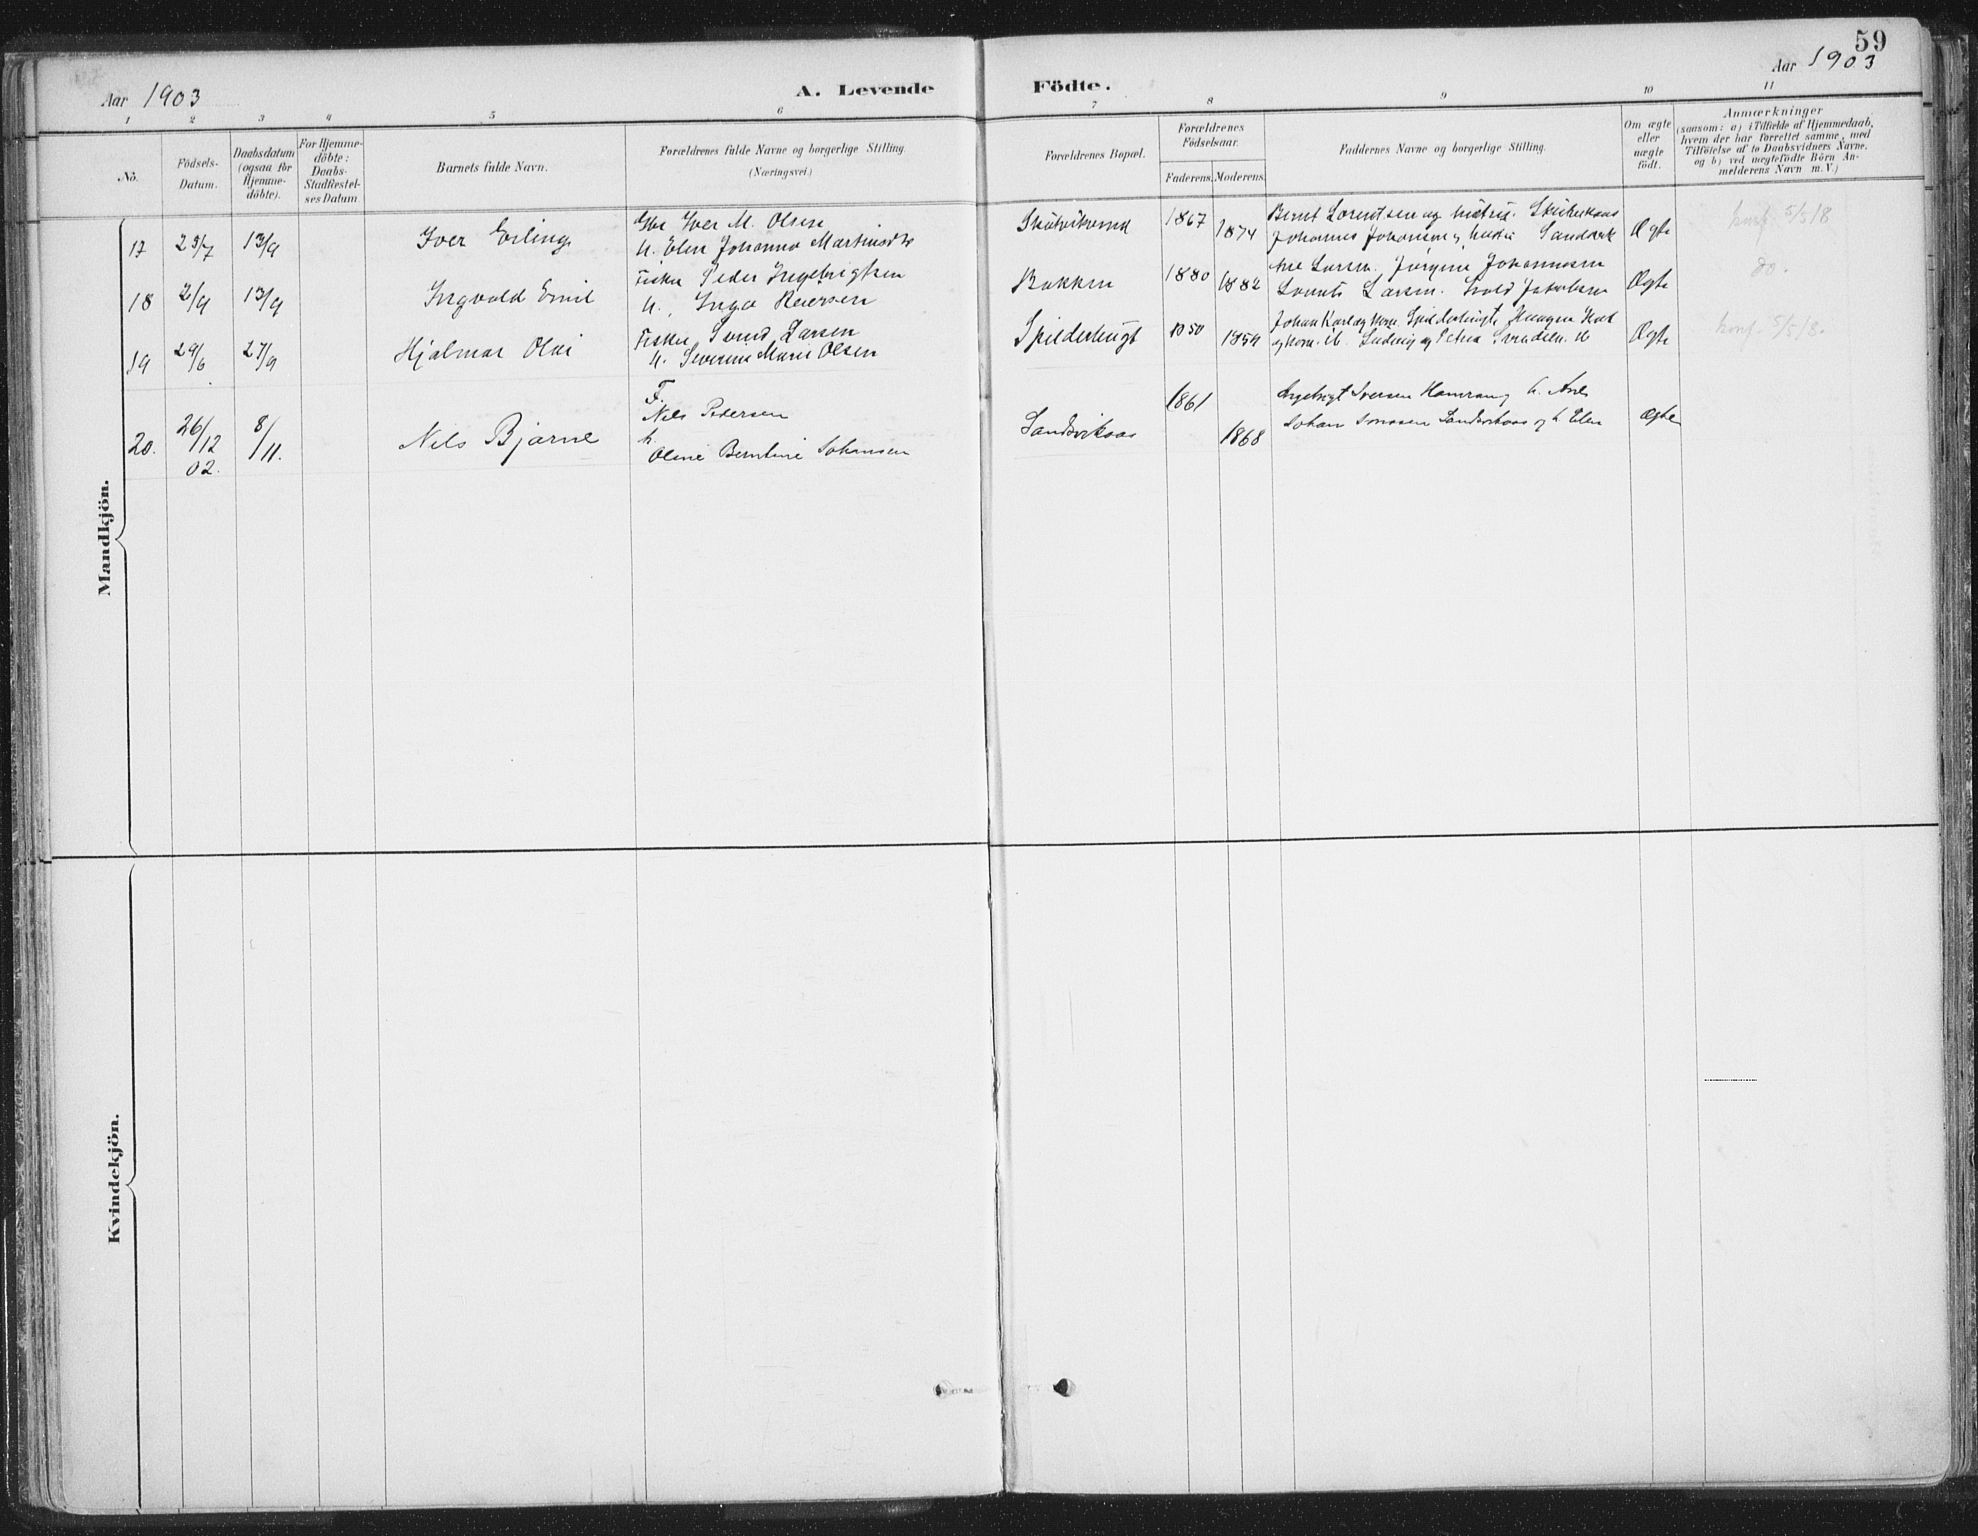 59
Aar 1903
A. Levende Födte.
Aar 1903
1 2 3 4 5 6 7 8 9 10 11
No.
Födsels-
Datum.
Daabsdatum
(ogsaa för
Hjemme-
döbte).
For Hjemme-
döbte:
Daabs-
Stadfæstel-
ses Datum
Barnets fulde Navn.
Forældrenes fulde Navne og borgerlige Stilling.
(Næringsvei.)
Forældrenes Bopæl.
Forældrenes
Födselsaar.
Faderens. Moderens.
Faddernes Navne og borgerlige Stilling.
Om ægte
eller
uægte
födt.
Anmærkninger
(saasom: a) i Tilfælde af Hjemmedaab,
hvem der har forrettet samme, med
Tilföielse af to Daabsvidners Navne,
og b) ved uegtefödte Börn An-
melderens Navn m. V.)
Mandkjön.
17 23/7 13/9 Iver Erling
Iver M. Olsen
h. Elen Johanna
1867 1874
Bernt Lorentsen og
Johannes Johansen
Ægte
konf. 5/5/18
18 2/9 13/9 Ingvald Emil
Fisker Peder Ingebrigtsen
h. Inga Reiersen
Bakken
1880 1882
Larsen. Jørgine Johannesen
Larsen. Jakobsen
Ægte
do.
19 29/6 27/9 Hjalmar Olai
Fisker Svend Larsen
h. Severine Marie Olsen
Spilderbugt
1850 1859
Johan Karl og Kone. Spilderbugt,
og Kone. Ludvig og Petra Svendsen.
Ægte
konf. 5/5/18.
20. 26/12 02. 8/11. Nils Bjarne
F.
Nils Pedersen
h.
Oline Berntine Johansen
Sandvikaas
1861
1868
Ingebrigt Iversen h. Ane
Johan Sandvikaas og h. Elen
Ægte
Kvindekjön.